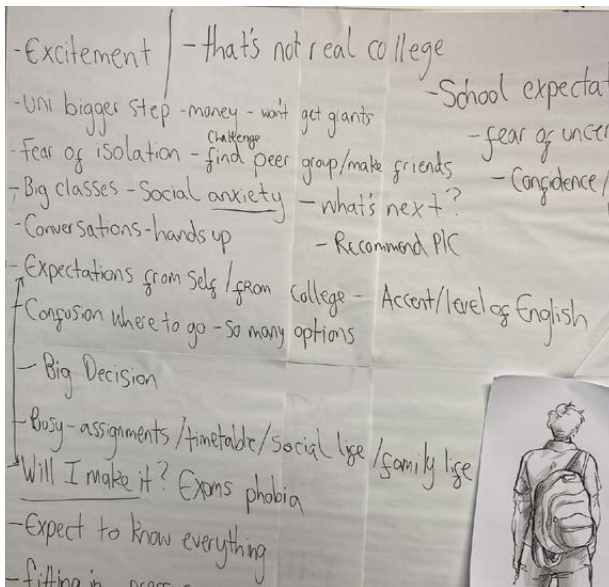 -Excitement | -that's not real college
-School expecta
-Uni bigger step -money - won't get grants
-fear of uncer
Challenge
-Fear of isolation - find peer group/make friends
-Confidence/
-Big classes - Social anxiety - what's next?
-Conversations - hands up
-Recommend PLC
-Expectations from self / from college - Accent/level of English
-Confusion where to go - so many options
-Big Decision
-Busy - assignments /timetable/social life /family life
Will I make it? Exams phobia
-Expect to know everything
-fitting in